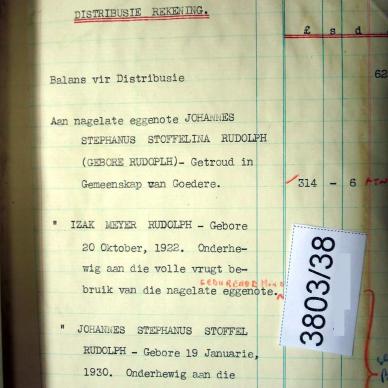 DISTRIBUSIE REKENING.
£ s d
Balans vir Distribusie
62
Aan nagelate eggenote JOHANNES
STEPHANUS STOFFELINA RUDOLPH
(GEBORE RUDOPLH)- Getroud in
Gemeenskap van Goedere.
314 - 6
" IZAK MEYER RUDOLPH - Gebore
20 Oktober, 1922. Onderhe-
wig aan die volle vrugt be-
GEDURENDE
bruik van die nagelate eggenote.
3803/38
" JOHANNES STEPHANUS STOFFEL
RUDOLPH - Gebore 19 Januarie,
1930. Onderhewig aan die